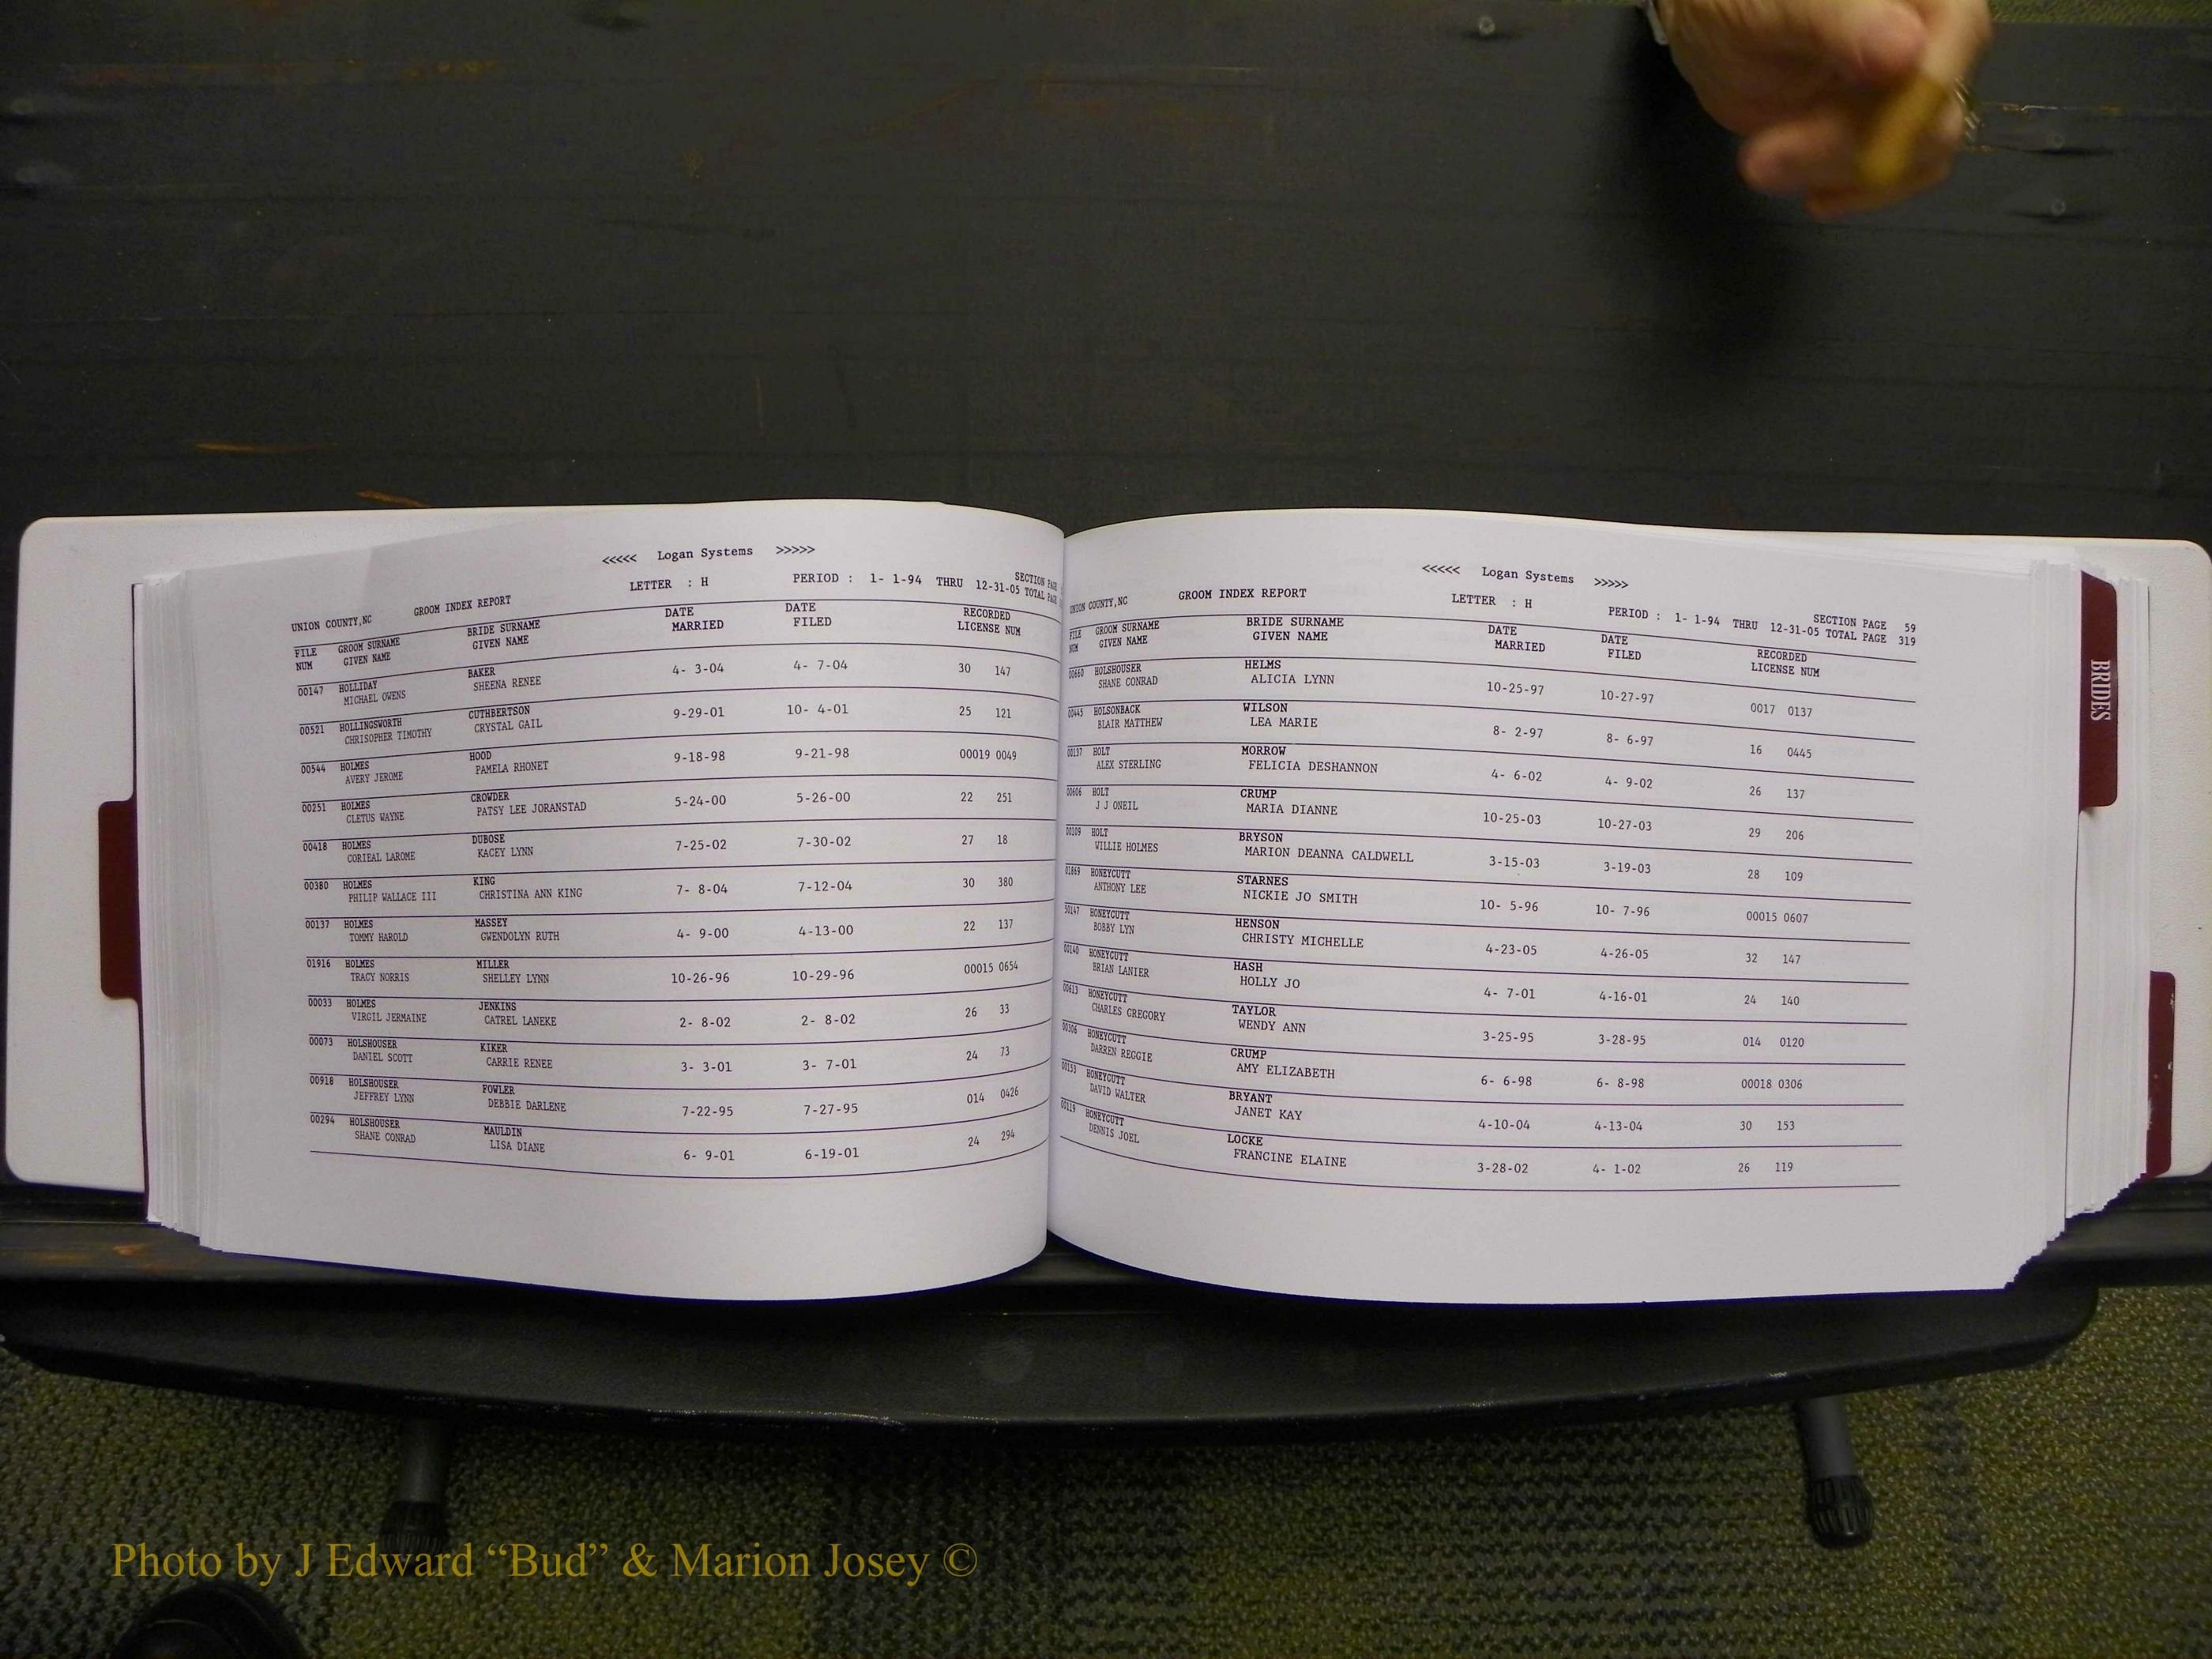 <<<<< Logan Systems >>>>>
UNION COUNTY,NC GROOM INDEX REPORT LETTER : H PERIOD : 1- 1-94 THRU 12-31-05 SECTION PAGE
TOTAL PAGE
FILE GROOM SURNAME BRIDE SURNAME DATE DATE RECORDED
NUM GIVEN NAME GIVEN NAME MARRIED FILED LICENSE NUM
00147 HOLLIDAY BAKER 4- 3-04 4- 7-04 30 147
MICHAEL OWENS SHEENA RENEE
00521 HOLLINGSWORTH CUTHBERTSON 9-29-01 10- 4-01 25 121
CHRISOPHER TIMOTHY CRYSTAL GAIL
00544 HOLMES HOOD 9-18-98 9-21-98 00019 0049
AVERY JEROME PAMELA RHONET
00251 HOLMES CROWDER 5-24-00 5-26-00 22 251
CLETUS WAYNE PATSY LEE JORANSTAD
00418 HOLMES DUBOSE 7-25-02 7-30-02 27 18
CORIEAL LAROME KACEY LYNN
00380 HOLMES KING 7- 8-04 7-12-04 30 380
PHILIP WALLACE III CHRISTINA ANN KING
00137 HOLMES MASSEY 4- 9-00 4-13-00 22 137
TOMMY HAROLD GWENDOLYN RUTH
01916 HOLMES MILLER 10-26-96 10-29-96 00015 0654
TRACY NORRIS SHELLEY LYNN
00033 HOLMES JENKINS 2- 8-02 2- 8-02 26 33
VIRGIL JERMAINE CATREL LANEKE
00073 HOLSHOUSER KIKER 3- 3-01 3- 7-01 24 73
DANIEL SCOTT CARRIE RENEE
00918 HOLSHOUSER FOWLER 7-22-95 7-27-95 014 0426
JEFFREY LYNN DEBBIE DARLENE
00294 HOLSHOUSER MAULDIN 6- 9-01 6-19-01 24 294
SHANE CONRAD LISA DIANE
<<<<< Logan Systems >>>>>
UNION COUNTY,NC GROOM INDEX REPORT LETTER : H PERIOD : 1- 1-94 THRU 12-31-05 SECTION PAGE 59
TOTAL PAGE 319
FILE GROOM SURNAME BRIDE SURNAME DATE DATE RECORDED
NUM GIVEN NAME GIVEN NAME MARRIED FILED LICENSE NUM
00660 HOLSHOUSER HELMS 10-25-97 10-27-97 0017 0137
SHANE CONRAD ALICIA LYNN
00445 HOLSONBACK WILSON 8- 2-97 8- 6-97 16 0445
BLAIR MATTHEW LEA MARIE
00137 HOLT MORROW 4- 6-02 4- 9-02 26 137
ALEX STERLING FELICIA DESHANNON
00606 HOLT CRUMP 10-25-03 10-27-03 29 206
J J ONEIL MARIA DIANNE
00109 HOLT BRYSON 3-15-03 3-19-03 28 109
WILLIE HOLMES MARION DEANNA CALDWELL
01869 HONEYCUTT STARNES 10- 5-96 10- 7-96 00015 0607
ANTHONY LEE NICKIE JO SMITH
50147 HONEYCUTT HENSON 4-23-05 4-26-05 32 147
BOBBY LYN CHRISTY MICHELLE
00140 HONEYCUTT HASH 4- 7-01 4-16-01 24 140
BRIAN LANIER HOLLY JO
00613 HONEYCUTT TAYLOR 3-25-95 3-28-95 014 0120
CHARLES GREGORY WENDY ANN
00306 HONEYCUTT CRUMP 6- 6-98 6- 8-98 00018 0306
DARREN REGGIE AMY ELIZABETH
00153 HONEYCUTT BRYANT 4-10-04 4-13-04 30 153
DAVID WALTER JANET KAY
00119 HONEYCUTT LOCKE 3-28-02 4- 1-02 26 119
DENNIS JOEL FRANCINE ELAINE
BRIDES
Photo by J Edward “Bud” & Marion Josey ©